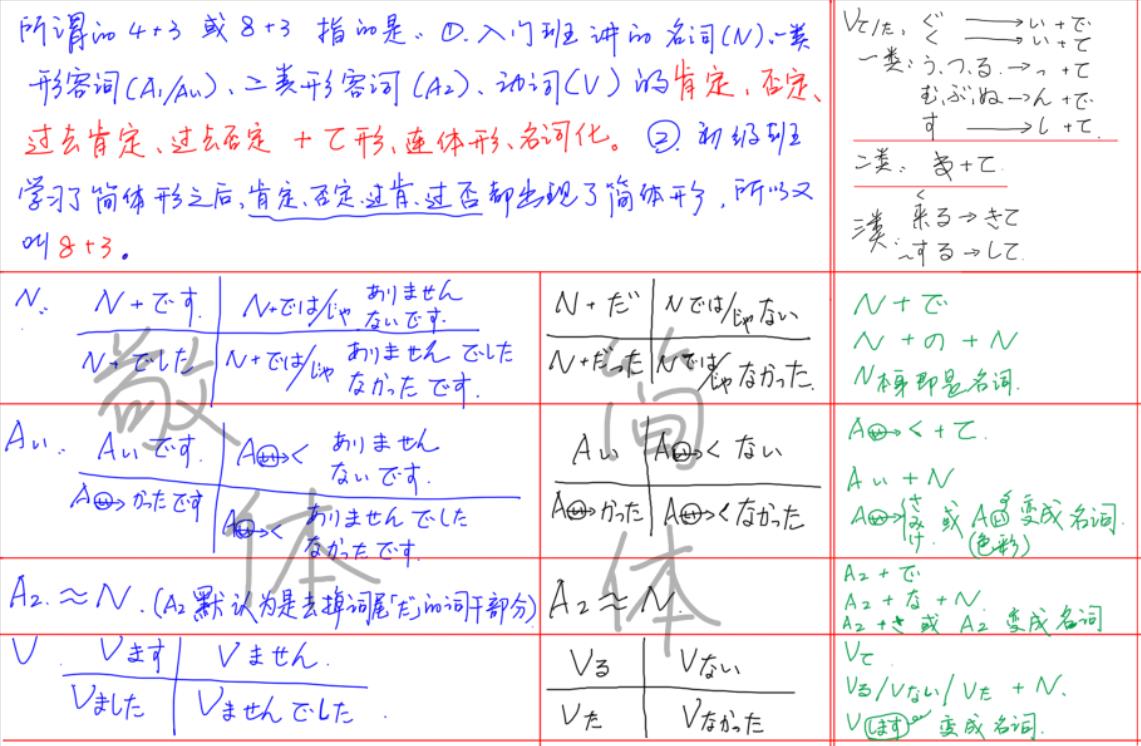 所谓的 4+3 或 8+3 指的是: ①. 入门班 讲的 名词(N)、一类
形容词(A₁/Aい)、二类形容词(A₂)、动词(V)的肯定、否定、
过去肯定、过去否定 + て形、连体形、名词化。 ②. 初级班
学习了简体形之后,肯定、否定、过肯、过否都出现了简体形,所以又
叫 8+3。
Vて/た: ぐ → い+で
く → い+て
一类: う、つ、る. → っ+て
む、ぶ、ぬ → ん+で
す → し+て.
二类: る+て.
く
三类: 来る→きて
~する→して.
N: N+です. N+では/じゃ ありません
ないです.
N+でした N+では/じゃ ありませんでした
なかったです.
N+だ Nでは/じゃ ない
N+だった Nでは/じゃ なかった.
N+で
N+の+N
N本身即是名词.
敬体
简体
Aい: Aいです. Aい→く ありません
ないです.
Aい→かったです Aい→く ありませんでした
なかったです.
Aい Aい→く ない
Aい→かった Aい→くなかった
Aい→く+て.
Aい+N
Aい→さ
み
け 或 Aい 变成名词.
(色彩)
A₂. ≈ N. (A₂默认为是去掉词尾「だ」的词干部分)
A₂ ≈ N.
A₂+で
A₂+な+N.
A₂+さ 或 A₂ 变成名词
V. Vます Vません.
Vました Vませんでした.
Vる Vない
Vた Vなかった
Vて
Vる/Vない/Vた+N.
Vます 变成名词.